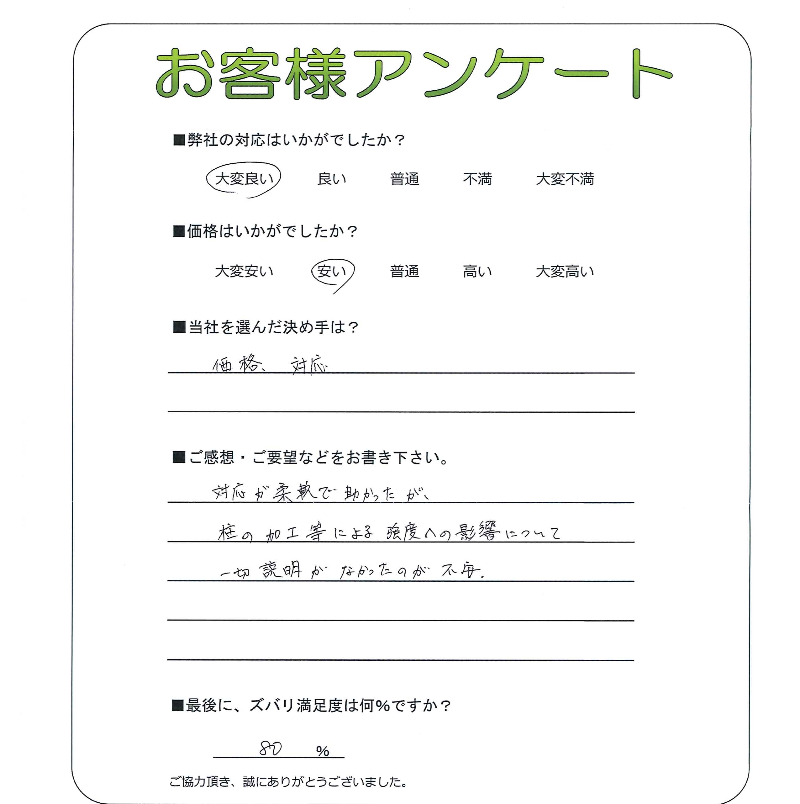 お客様アンケート
■弊社の対応はいかがでしたか？
大変良い 良い 普通 不満 大変不満
■価格はいかがでしたか？
大変安い 安い 普通 高い 大変高い
■当社を選んだ決め手は？
価格、対応
■ご感想・ご要望などをお書き下さい。
対応が柔軟で助かったが、
柱の加工等による強度への影響について
一切説明がなかったのが不安.
■最後に、ズバリ満足度は何%ですか？
80 %
ご協力頂き、誠にありがとうございました。